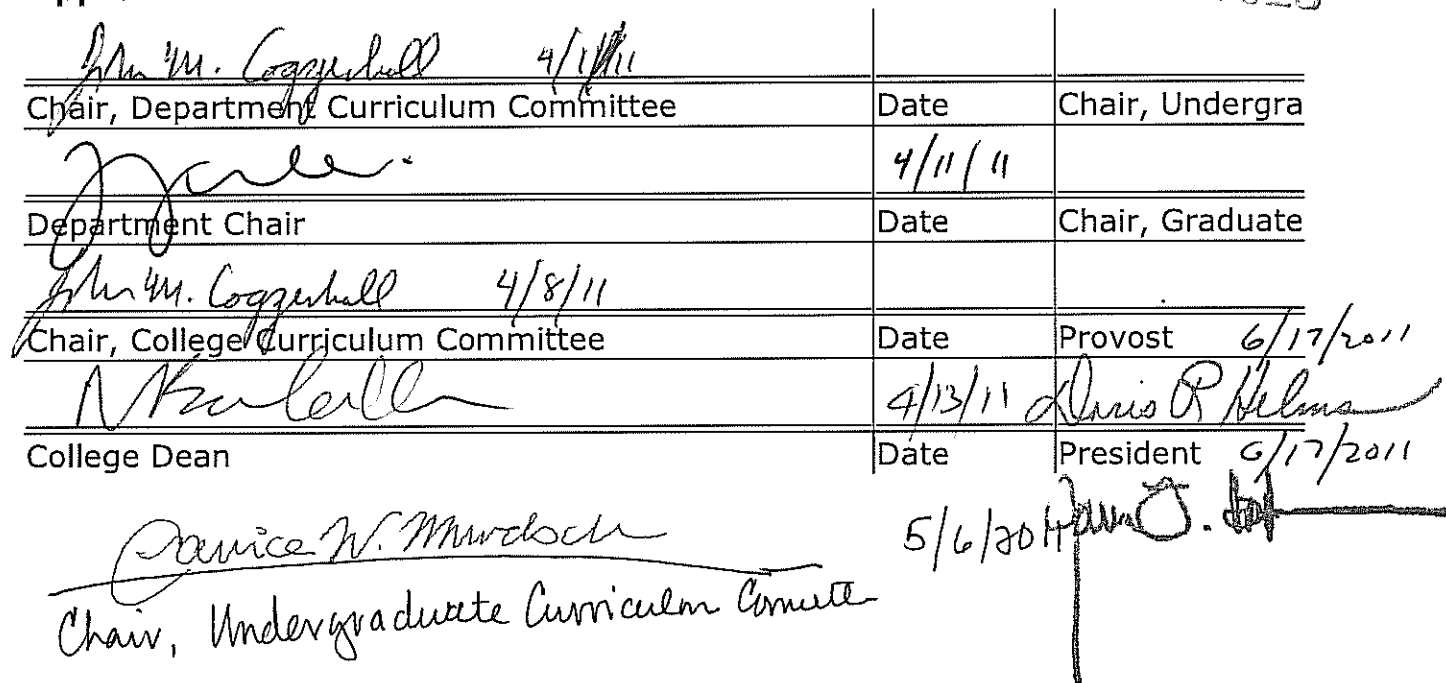 John M. Coggeshall 4/1/11
Chair, Department Curriculum Committee Date Chair, Undergra
4/11/11
Department Chair Date Chair, Graduate
John M. Coggeshall 4/8/11
Chair, College Curriculum Committee Date Provost 6/17/2011
4/13/11 Doris R Helms
College Dean Date President 6/17/2011
Janice W. Murdoch 5/6/2011
Chair, Undergraduate Curriculum Comittee